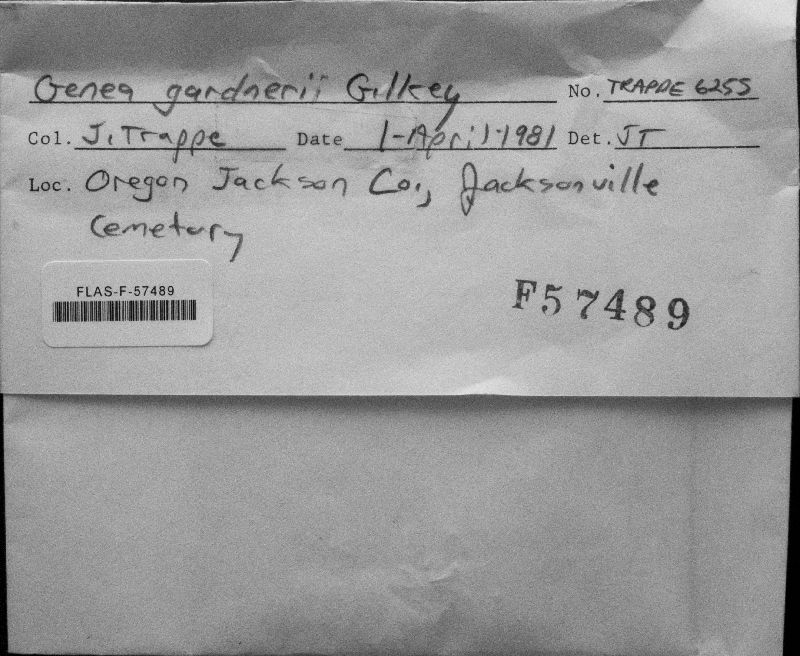 Genea gardnerii Gilkey No. TRAPPE 6255
Col. J. Trappe Date 1-April-1981 Det. JT
Loc. Oregon Jackson Co., Jacksonville
Cemetary
FLAS-F-57489
F57489